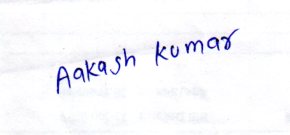 Aakash kumar